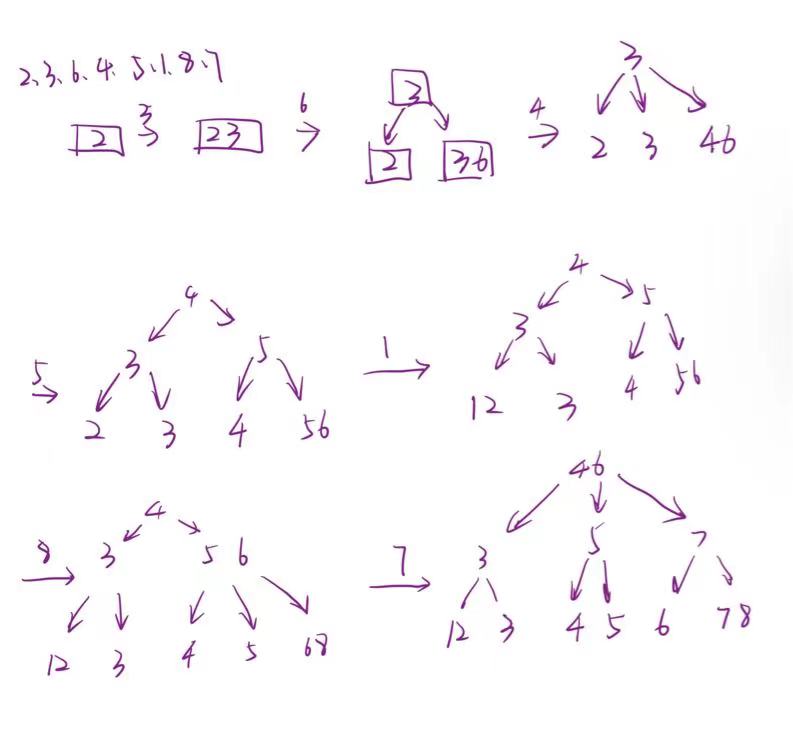 2、3、6、4、5、1、8、7
2 3 23 6
3
2 36
4
3
2 3 46
5
4
3 5
2 3 4 56
1
4
3 5
12 3 4 56
8
4
3 5 6
12 3 4 5 68
7
46
3 5 7
12 3 4 5 6 78